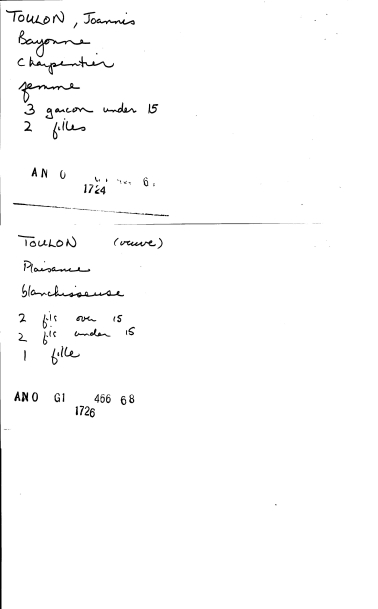 TOULON, Joannis
Bayonne
Charpentier
femme
3 garcon under 15
2 filles
AN O 6
1724
TOULON (veuve)
Plaisance
blanchisseuse
2 fis over 15
2 fis under 15
1 fille
ANO G1 466 68
1726